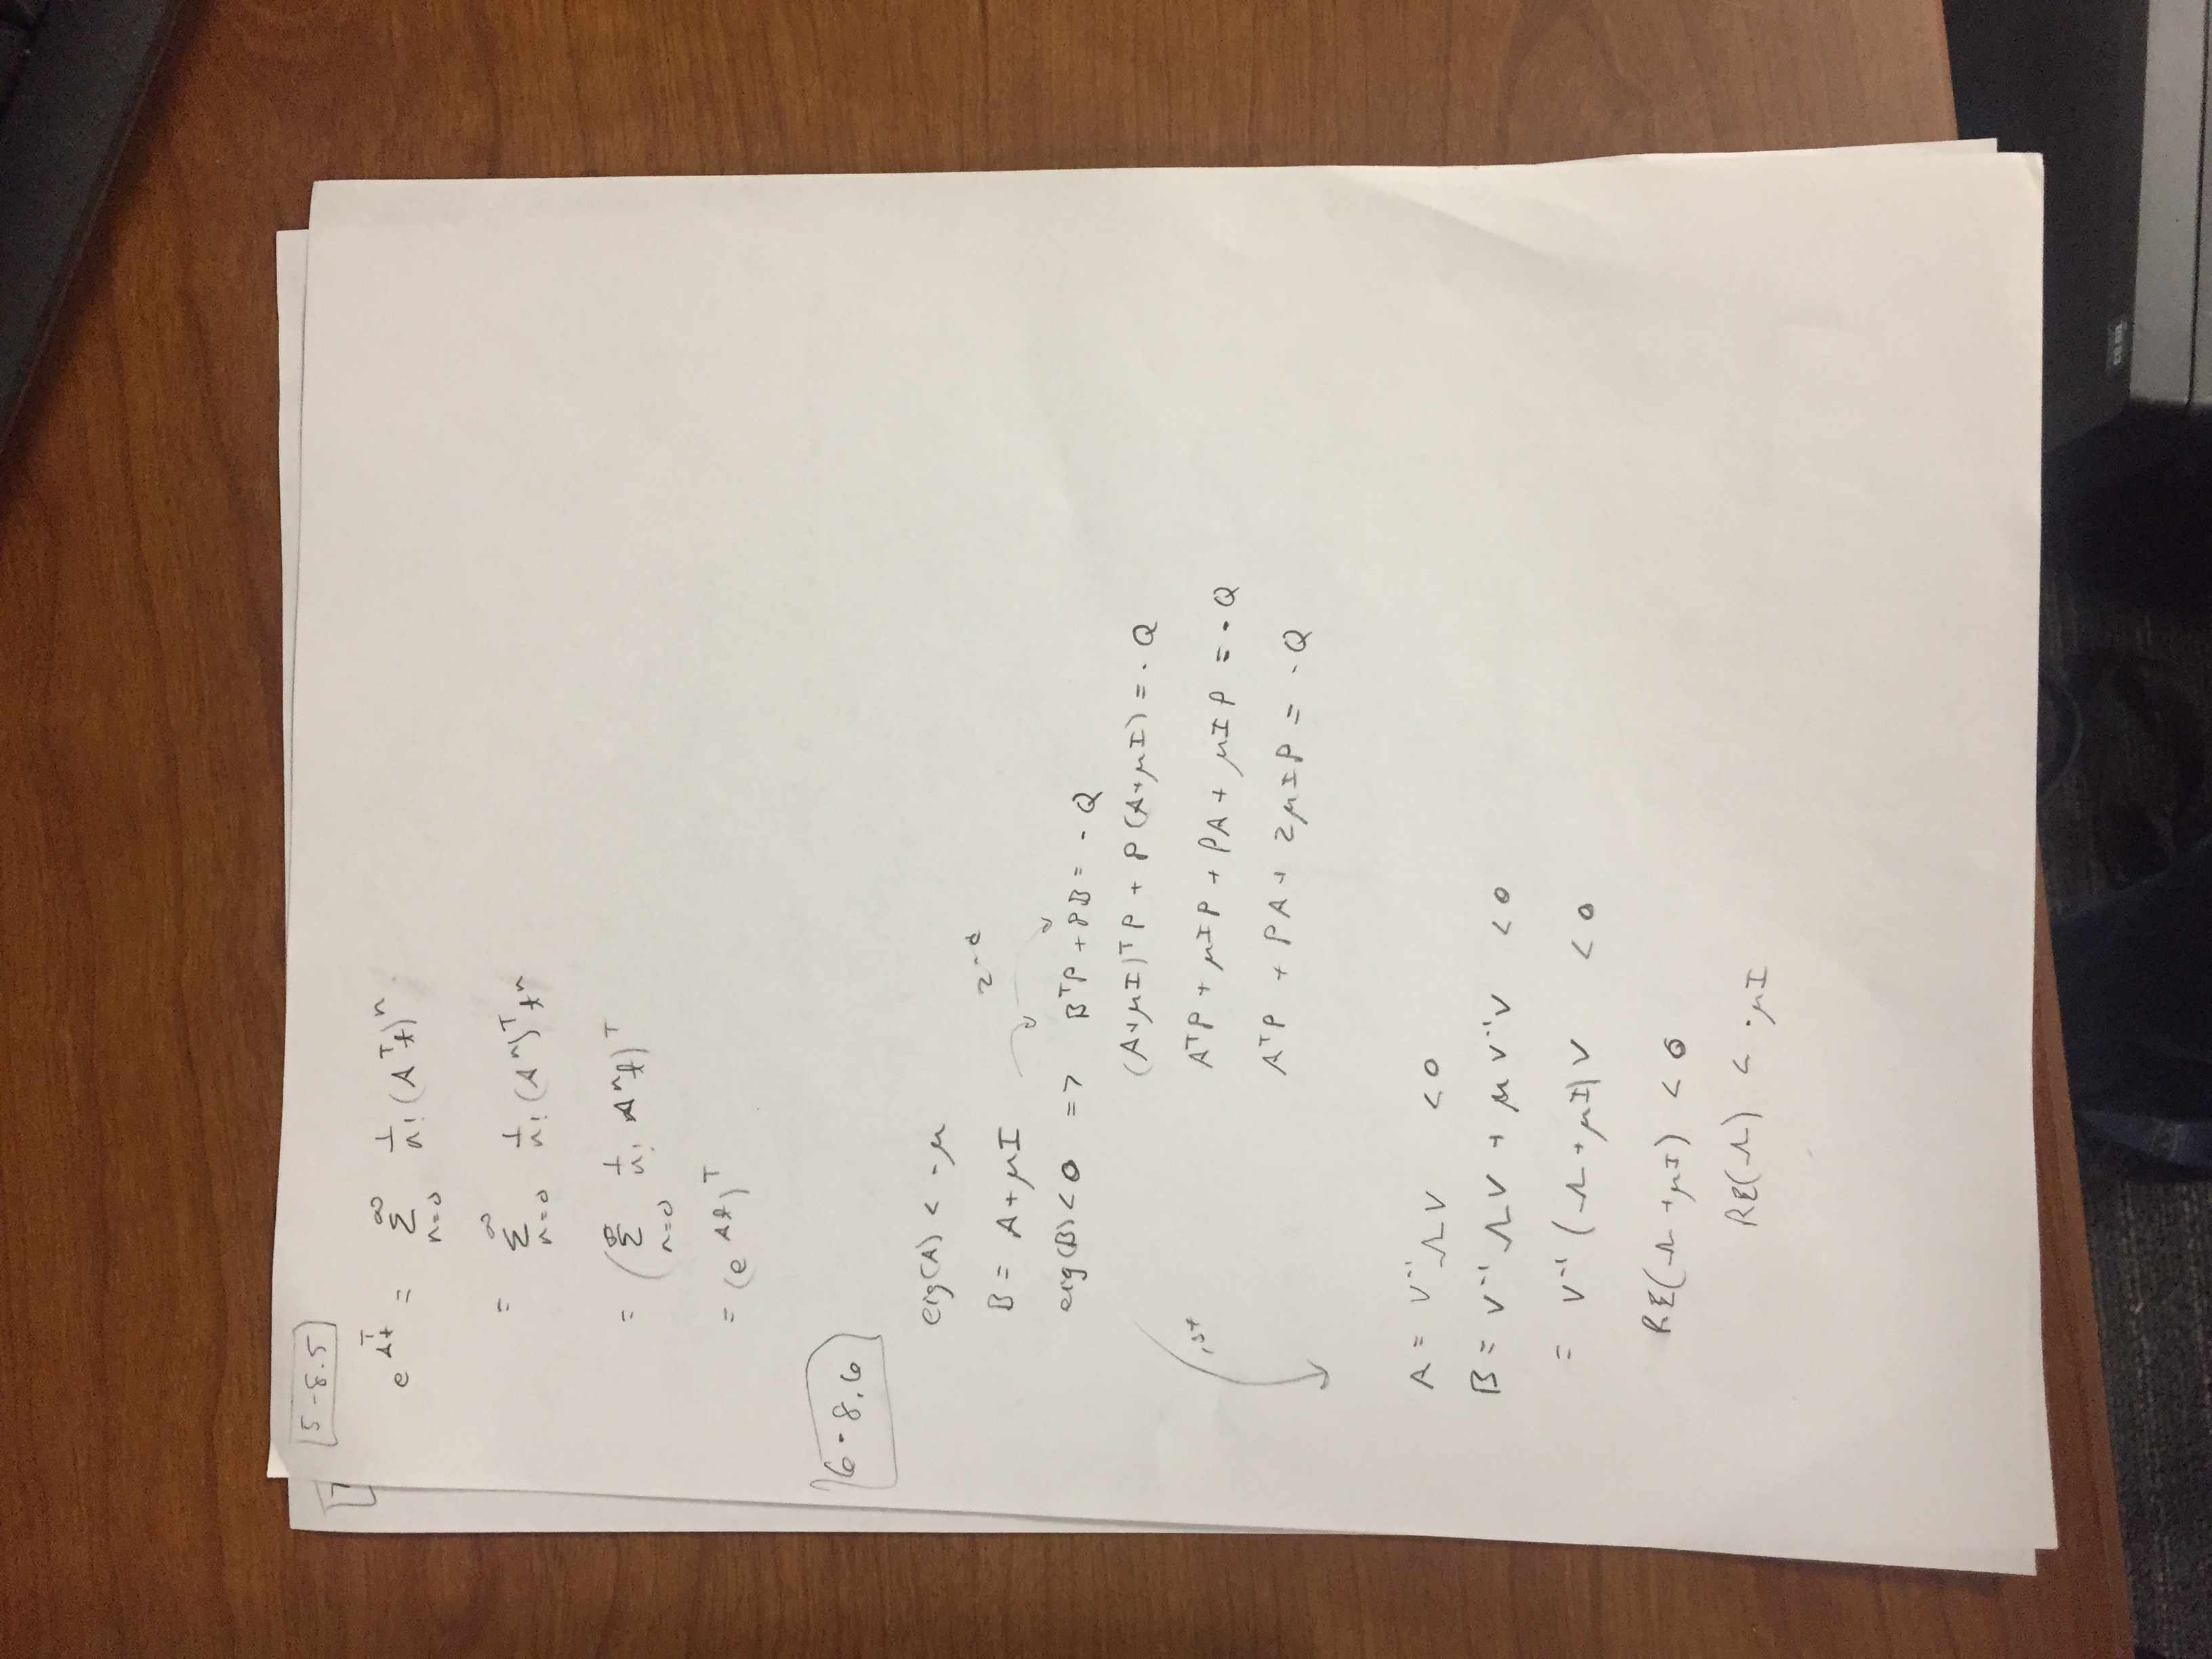 5-8.5
7
e^{A^T t} = Σ_{n=0}^{∞} 1/n! (A^T t)^n
= Σ_{n=0}^{∞} 1/n! (A^n)^T t^n
= (Σ_{n=0}^{∞} 1/n! A^n t)^T
= (e^{At})^T
6-8.6
eig(A) < -μ
2nd
B = A+μI
eig(B)<0 => B^T P + PB = -Q
(A+μI)^T P + P(A+μI) = -Q
1st
A^T P + μIP + PA + μIP = -Q
A^T P + PA + 2μIP = -Q
A = V^{-1}ΛV <0
B = V^{-1}ΛV + μV^{-1}V <0
= V^{-1}(Λ+μI)V <0
RE(Λ+μI) < 0
RE(Λ) < -μI